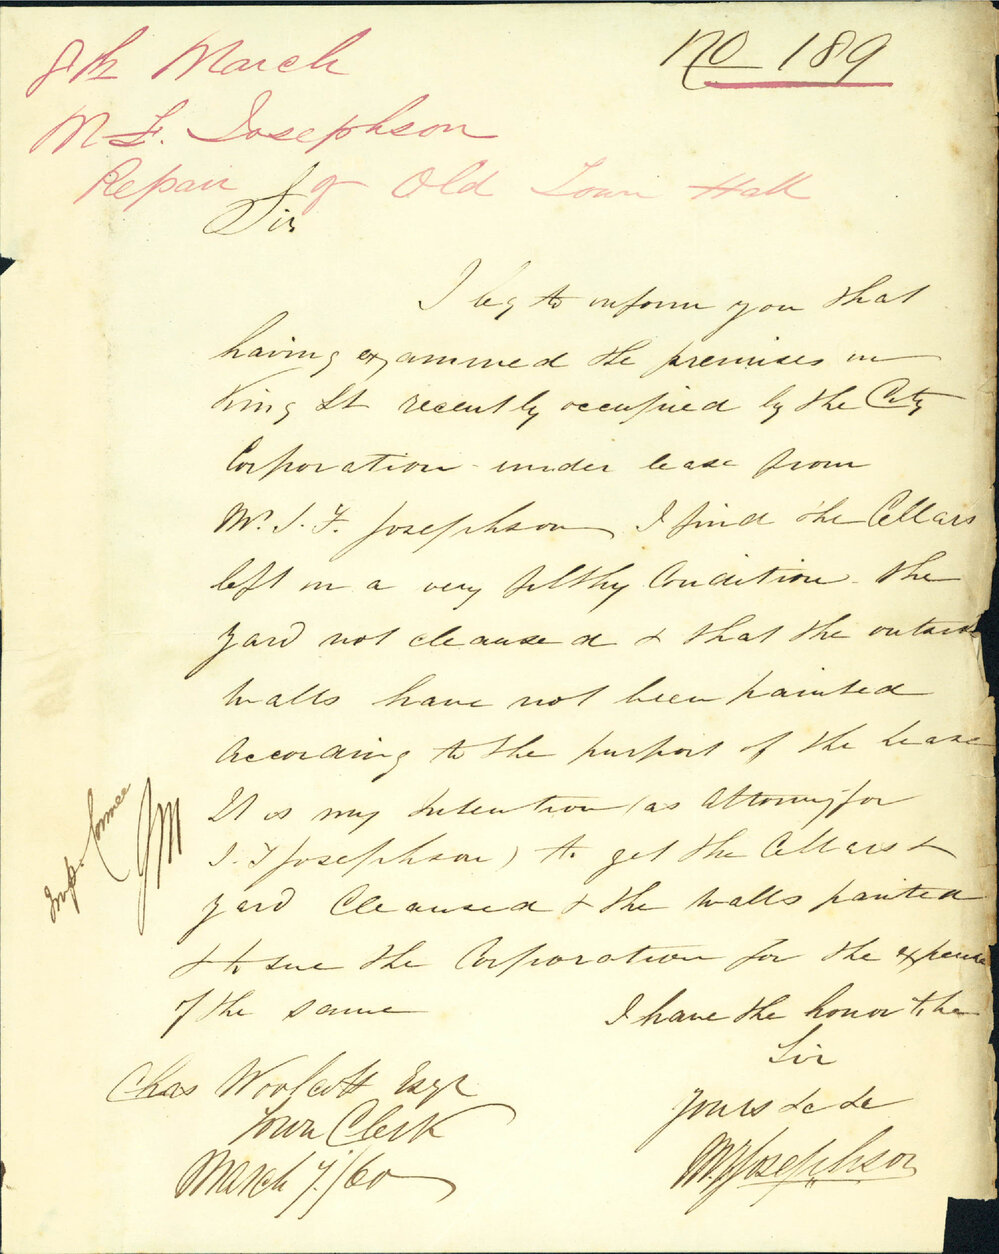 8th March
No 189
M F. Josephson
Repair of Old Town Hall
Sir
I beg to inform you that
having examined the premises in
King St recently occupied by the City
Corporation under lease from
Mr. J. F. Josephson I find the Cellars
left in a very filthy Condition - the
yard not cleansed & that the outside
walls have not been painted
according to the purport of the Lease
It is my intention (as Attorney for
J. F Josephson) to get the Cellars &
yard Cleansed & the walls painted
& to sue the Corporation for the expense
of the same
I have the honor to be
Sir
Yours &c &c
M. F Josephson
Chas Woolcott Esqr
Town Clerk
March 7./60
Imp. Commee
JM